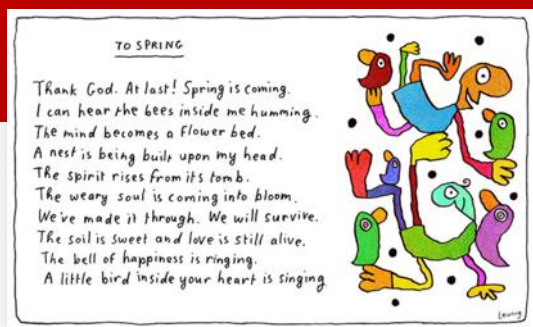 TO SPRING
Thank God. At last! Spring is coming.
I can hear the bees inside me humming.
The mind becomes a flower bed.
A nest is being built upon my head.
The spirit rises from its tomb.
The weary soul is coming into bloom.
We've made it through. We will survive.
The soil is sweet and love is still alive.
The bell of happiness is ringing.
A little bird inside your heart is singing
Leunig